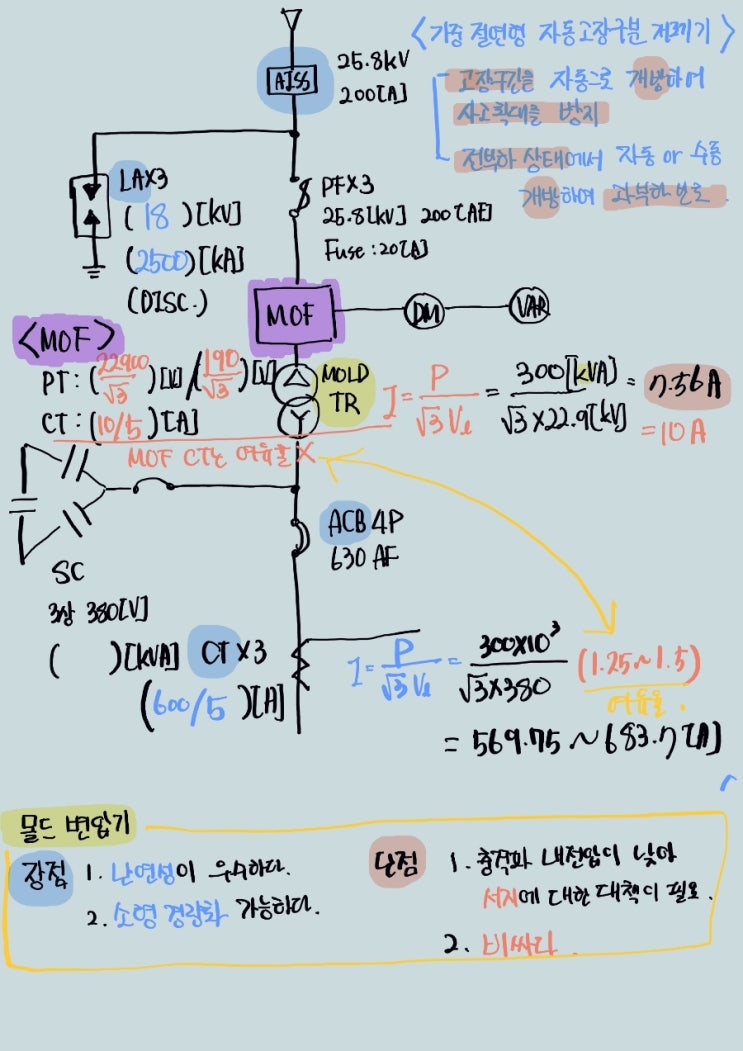 <기중 절연형 자동고장구분 개폐기>
- 고장구간을 자동으로 개방하여
사고확대를 방지
- 전부하 상태에서 자동 or 수동
개방하여 과부하 보호.
AISS
25.8kV
200[A]
LAX3
(18)[kV]
(2500)[kA]
(DISC.)
PFX3
25.8[kV] 200[AF]
Fuse : 20[A]
MOF
DM
VAR
<MOF>
PT : (22900/√3)[V]/(190/√3)[V]
CT : (10/5)[A]
MOF CT는 여유율 X
MOLD
TR
I = P/√3Vℓ = 300[kVA]/√3×22.9[kV] = 7.56A
= 10A
ACB 4P
630 AF
SC
3상 380[V]
( )[kVA]
CT×3
(600/5)[A]
I = P/√3Vℓ = 300×10³/√3×380 (1.25~1.5)
여유율.
= 569.75 ~ 683.7[A]
몰드 변압기
장점 1. 난연성이 우수하다.
2. 소형 경량화 가능하다.
단점 1. 충격파 내전압이 낮아
서지에 대한 대책이 필요.
2. 비싸다.